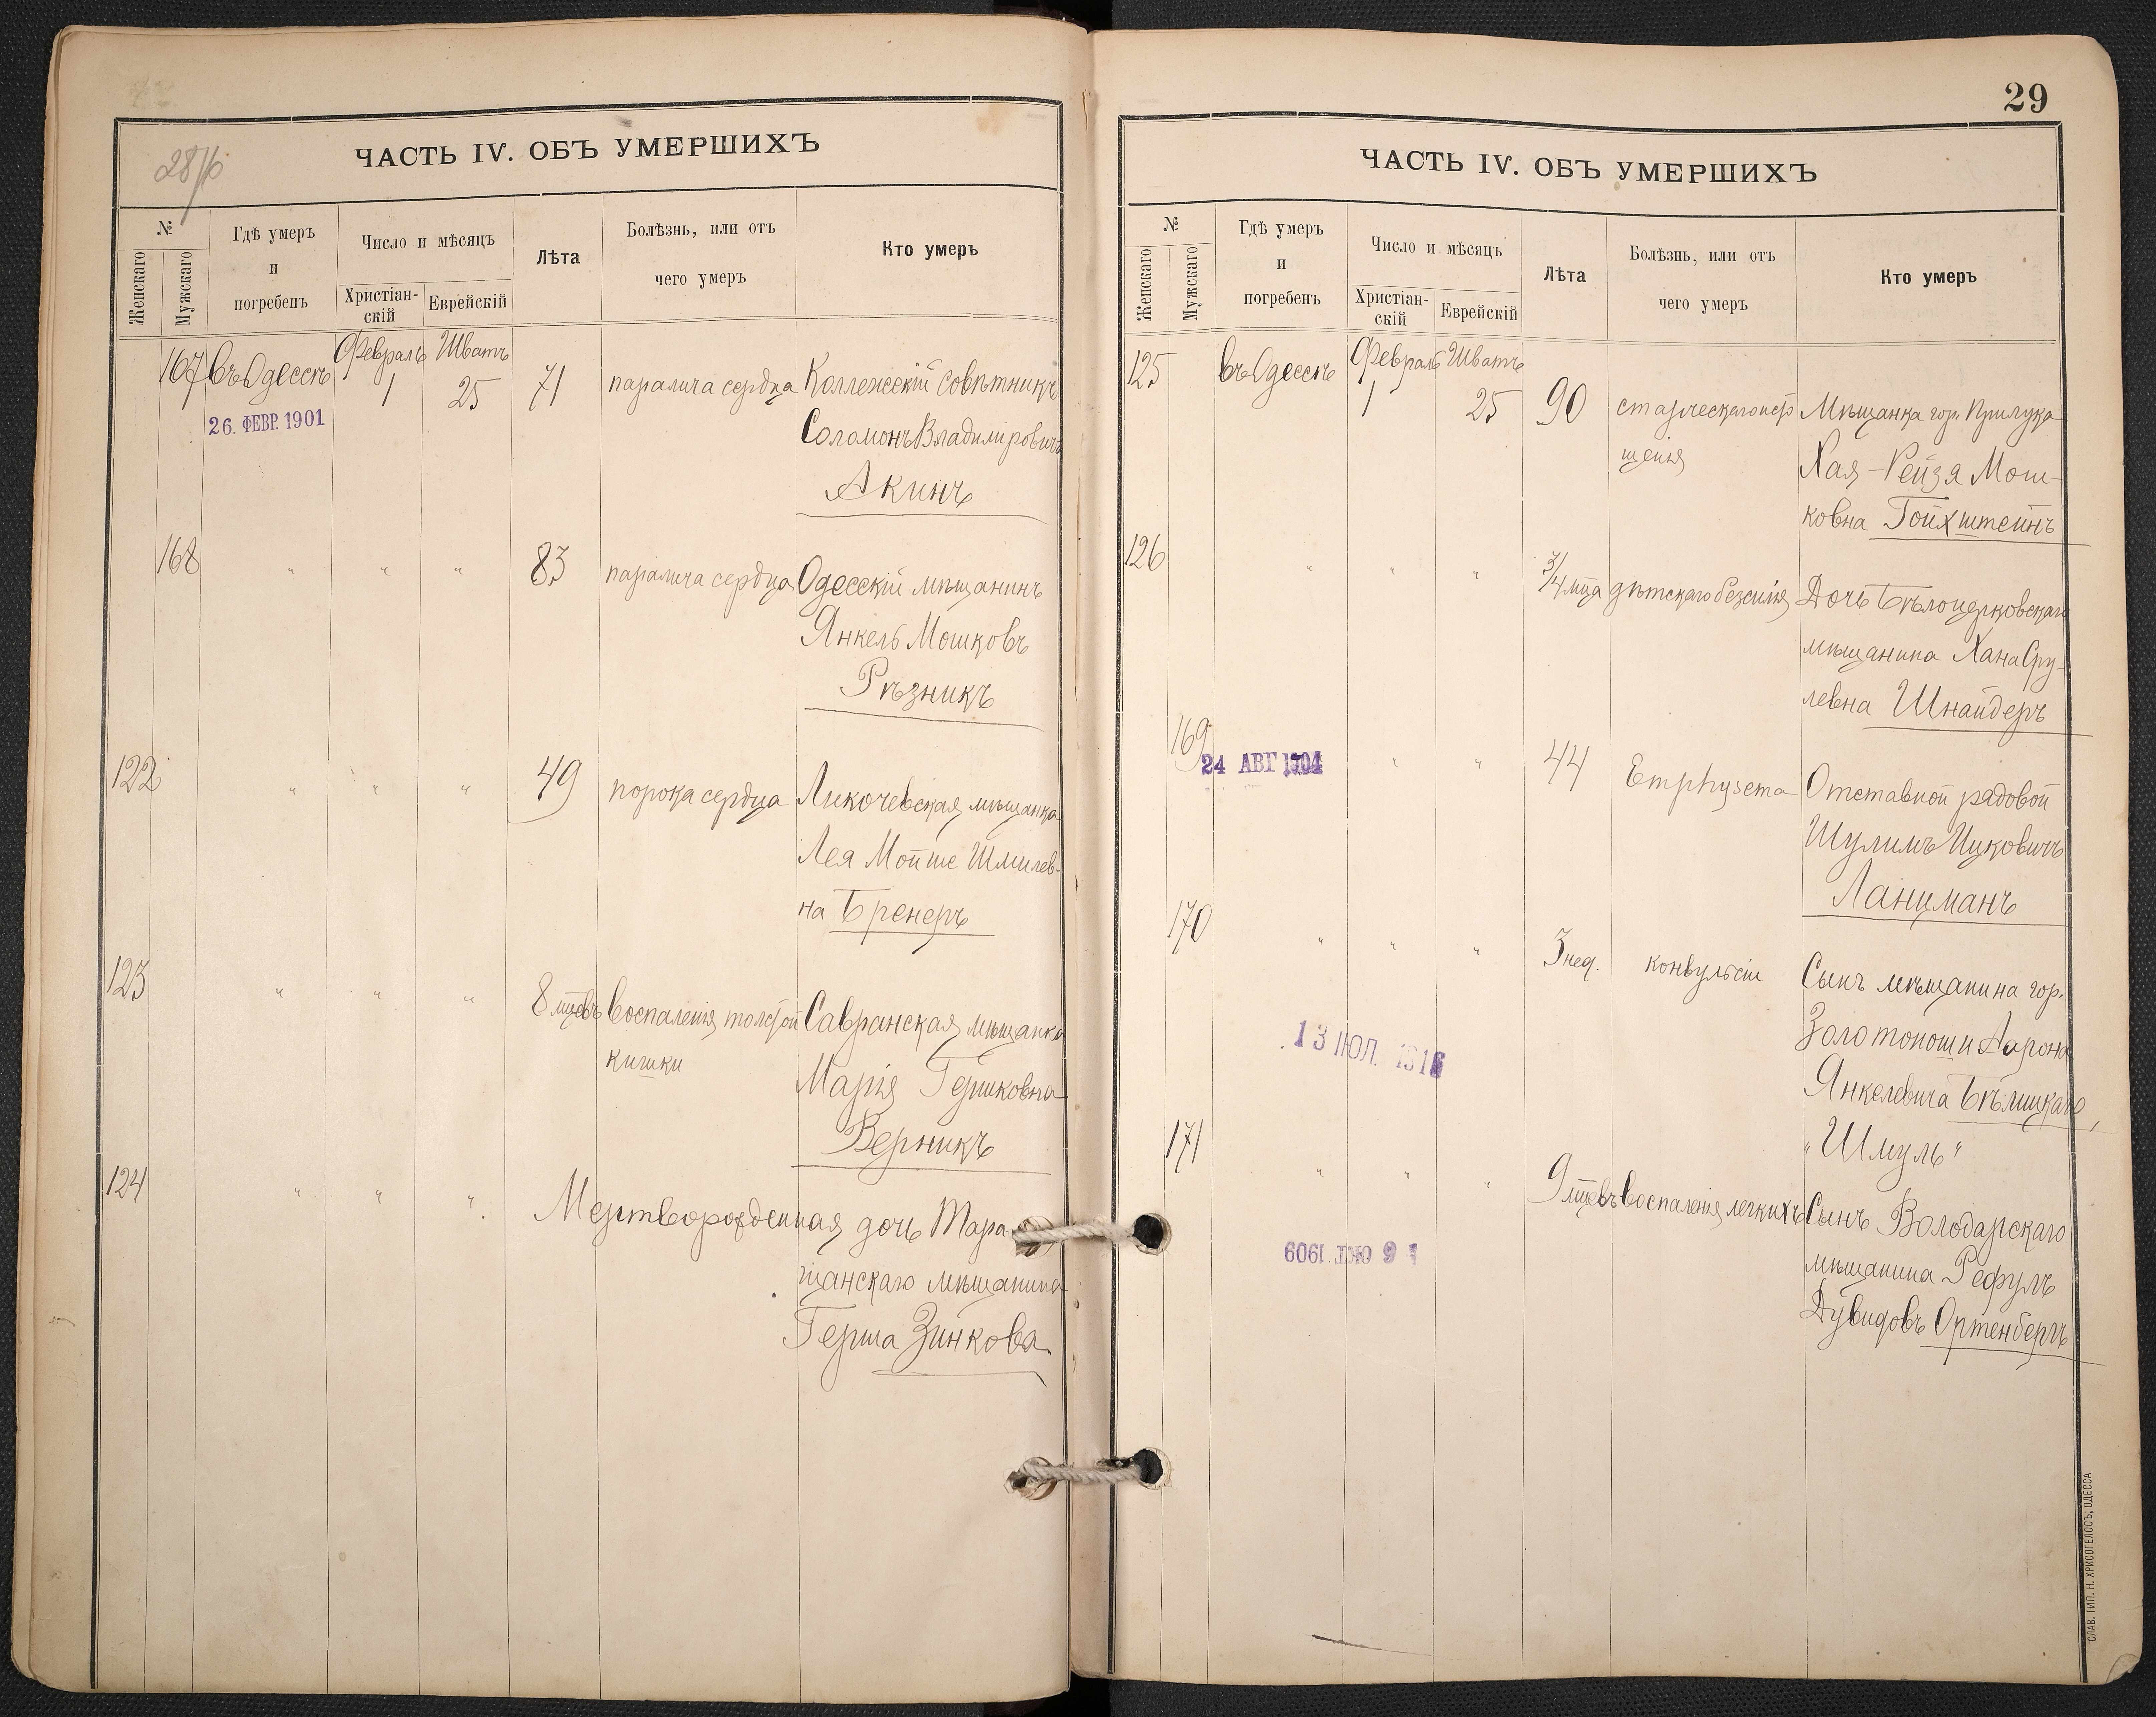 28/16
ЧАСТЬ IV. ОБЪ УМЕРШИХЪ
№
Женскаго
Мужскаго
Гдѣ умеръ
и
погребенъ
Число и мѣсяцъ
Христіан-
скій
Еврейскій
Лѣта
Болѣзнь, или отъ
чего умеръ
Кто умеръ
Февраль Шватъ
167 въ Одессѣ 1 25 71 паралича сердца Коллежскій совѣтникъ
26. ФЕВР. 1901
Соломонъ Владимировичъ
Акинъ
168 " " " 83 паралича сердца Одесскій мѣщанинъ
Янкель Мошковъ
Рѣзникъ
122 " " " 49 порока сердца мѣщанка
Лея Мойше Шмилев-
на Бренеръ
123 " " " 8 мцевъ воспаленія толстой Савранская мѣщанка
кишки
Марія Гершковна
Верникъ
124 " " " Мертворожденная дочь Тара-
щанскаго мѣщанина
Герша Зинкова
29
ЧАСТЬ IV. ОБЪ УМЕРШИХЪ
№
Женскаго
Мужскаго
Гдѣ умеръ
и
погребенъ
Число и мѣсяцъ
Христіан-
скій
Еврейскій
Лѣта
Болѣзнь, или отъ
чего умеръ
Кто умеръ
Февраль Шватъ
125 въ Одессѣ 1 25 90 старческаго исто Мѣщанка гор. Прилука
щенія
Хая-Рейзя Мош-
ковна Гойхштейнъ
126 " " " 3/4 мца дѣтскаго безсилія Дочь Бѣлоцерковскаго
мѣщанина Хана Сру-
левна Шнайдеръ
169 24 АВГ 1904 " " 44 Emphysema Отставной рядовой
Шулимъ Ицковичъ
Ланцманъ
170 " " " 3 нед. конвульсіи Сынъ мѣщанина гор.
Золотоноши Аарона
13 ІЮЛ.
Янкелевича Бѣлицкаго,
"Шмуль"
171 " " " 9 мцевъ воспаленія легкихъ Сынъ Володарскаго
мѣщанина Рефулъ
16 ОКТ. 1909
Дувидовъ Ортенбергъ
СЛАВ. ТИП. Н. ХРИСОГЕЛОСЪ, ОДЕССА